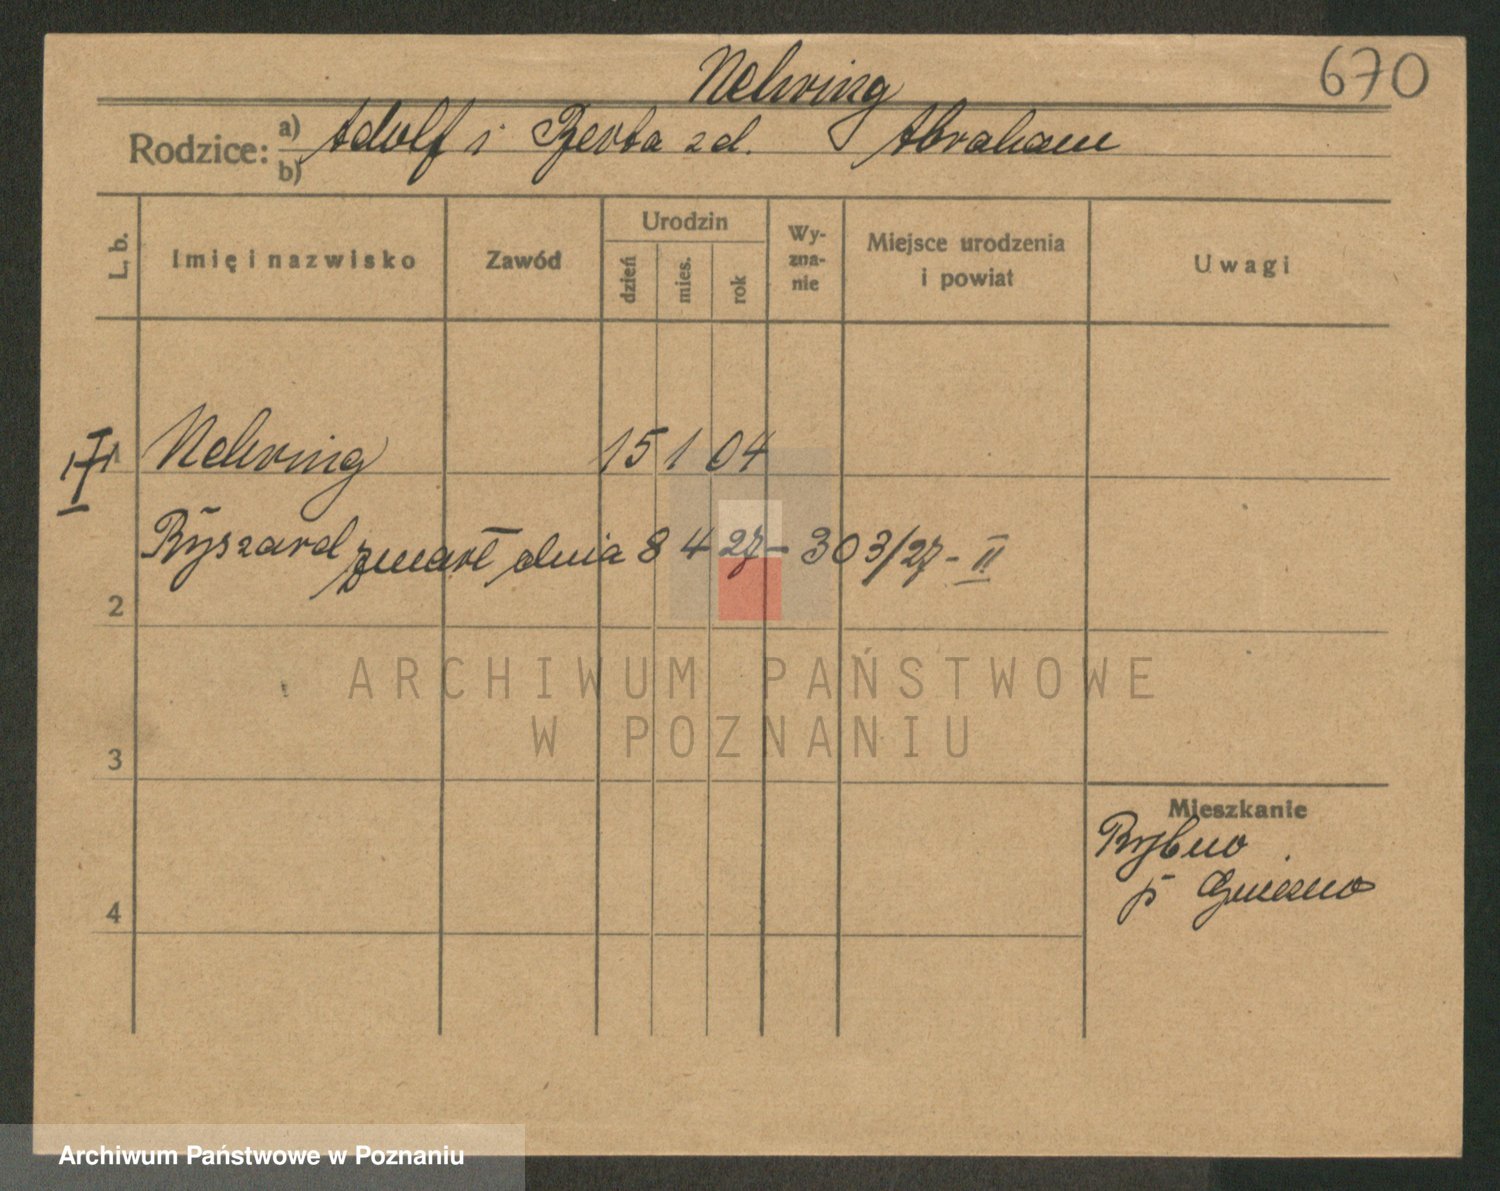 670
Nehring
Rodzice: a) Adolf i Berta zd. Abraham
b)
L. b. Imię i nazwisko Zawód Urodzin dzień mies. rok Wyznanie Miejsce urodzenia i powiat Uwagi
1 Nehring 15 1 04
Ryszard zmarł dnia 8 4 27 - 303/27 - II
2
3
4
Mieszkanie
Rybno
p
ARCHIWUM PAŃSTWOWE
W POZNANIU
Archiwum Państwowe w Poznaniu